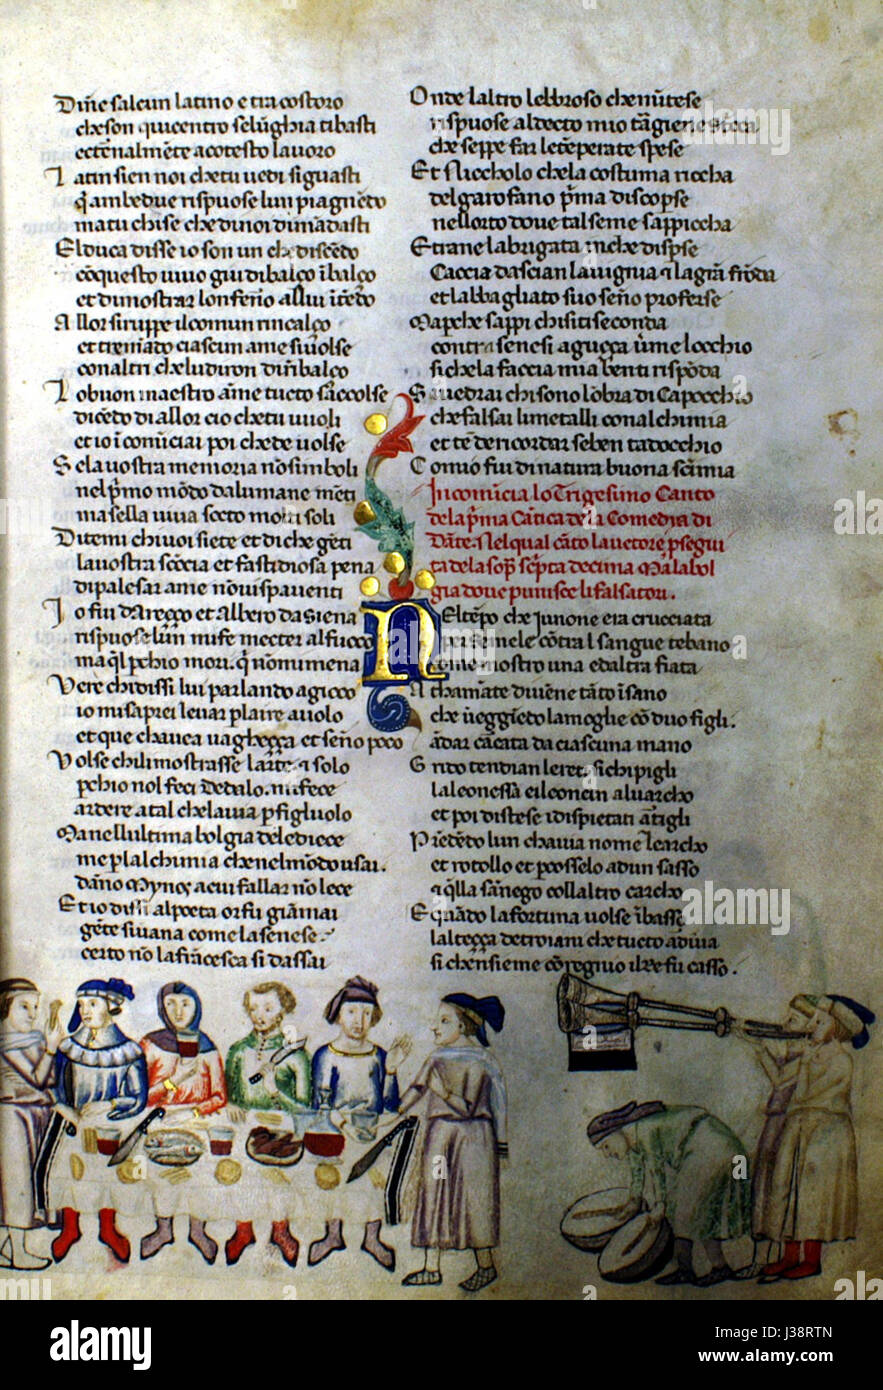 Dim̄e salcun latino e tra costoro
che son quicentro se lūghia tibasti
ectēnalm̄ete a cotesto lavoro
Latin sien noi che tu vedi si guasti
q̄ ambedue rispuose lun piagnēdo
ma tu chi se che di noi dimādasti
El duca disse io son un che discēdo
cō questo vivo giu di balço ī balço
et di mostrar lonferno allui ītēdo
Allor si ruppe il comun rincalço
et tremādo ciascun ame si volse
con altri che ludiron di rībalço
Lo buon maestro ame tucto saccolse
dicēdo di allor cio che tu vuoli
et io īcomīciai poi che de volse
Se la vostra memoria nō simboli
nel p̄mo mōdo dalumane mēti
ma sella viva socto molti soli
Ditemi chi voi siete et di che gēti
la vostra scōcia et fastidiosa pena
di palesar ame nō vi spaventi
Io fui dareço et albero da siena
rispuose lun mi fe mecter al fuoco
ma q̄l p̄ chio mori q̄ nō mi mena
Vere chi dissi lui parlando a gioco
io mi saprei levar p̄ laire a volo
et que chavea vagheça et sēno poco
Volse chi li mostrasse larte & solo
p̄ chio nol feci dedalo mi fece
ardere a tal che lavia p̄ figluolo
Ma nellultima bolgia dele diece
me p̄ lalchimia che nel mōdo usai
dānō Mynos a cui fallar nō lece
Et io dissi al poeta or fu giāmai
gēte si vana come la senese
certo nō la frācesca si dassai
Onde laltro lebbroso che m̄tese
rispuose al decto mio tāgiene stecca
che seppe far le tēperate spese
Et Niccholo che la costuma riccha
del garofano p̄ma discop̄se
nellorto dove tal seme sappiccha
Et rane la brigata in che dispse
Caccia dascian la vigna & la grā frōda
et labbagliato suo sēno proferse
Ma p̄che sappi chi si ti seconda
contra senesi aguçça ver me locchio
si che la faccia mia ben ti rispōda
Si vedrai chi sono lōbra di Capocchio
che falsai li metalli con alchimia
et te dē ricordar se ben tadocchio
Comio fui di natura buona scimia
Incomīcia lo Trigesimo Canto
de la p̄ma Cātica de la Comedia di
Dāte. Nel qual cāto lauctore p̄segui
ta de la sop̄ sc̄pta decima Malabol
gia dove punisce li falsatori.
Nel tēpo che Iunone era crucciata
per Semele cōtra l sangue tebano
come mostro una ed altra fiata
Achamāte divēne tāto īsano
che veggiēdo la moglie cō duo figli.
ādar cārcata da ciascuna mano
Grido tendian le reti si chi pigli
la leonessa e i leoncin al varcho
et poi distese i dispietati artigli
Prēdēdo lun chavia nome learcho
et rotollo et p̄cosselo ad un sasso
& q̄lla sānego collaltro carcho
E quādo la fortuna volse ī basso
lalteçça de troiani che tucto ardiva
si che nsieme col regno il re fu casso.
a alamy stock photo
alamy
Image ID: J38RTN
www.alamy.com